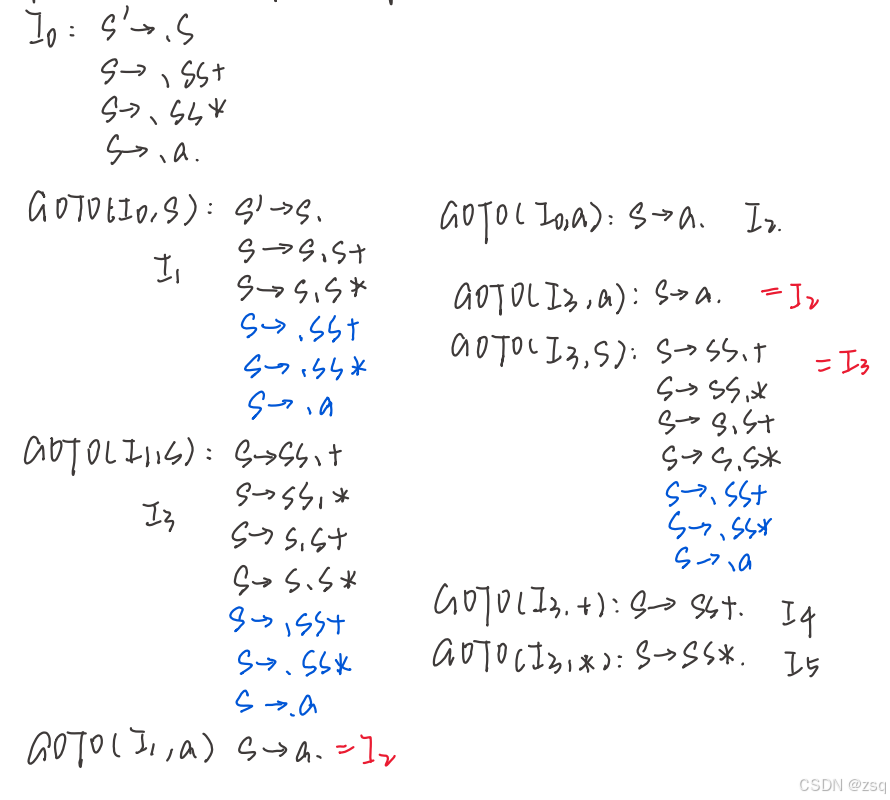 I0: S'→.S
S→.SS+
S→.SS*
S→.a.
GOTO(I0,S): S'→S.
I1
S→S.S+
S→S.S*
S→.SS+
S→.SS*
S→.a
GOTO(I1,S): S→SS.+
I3
S→SS.*
S→S.S+
S→S.S*
S→.SS+
S→.SS*
S→.a
GOTO(I1,a) S→a. =I2
GOTO(I0,a): S→a. I2.
GOTO(I3,a): S→a. =I2
GOTO(I3,S): S→SS.+ =I3
S→SS.*
S→S.S+
S→S.S*
S→.SS+
S→.SS*
S→.a
GOTO(I3.+): S→SS+. I4
GOTO(I3,*): S→SS*. I5
CSDN @zsq